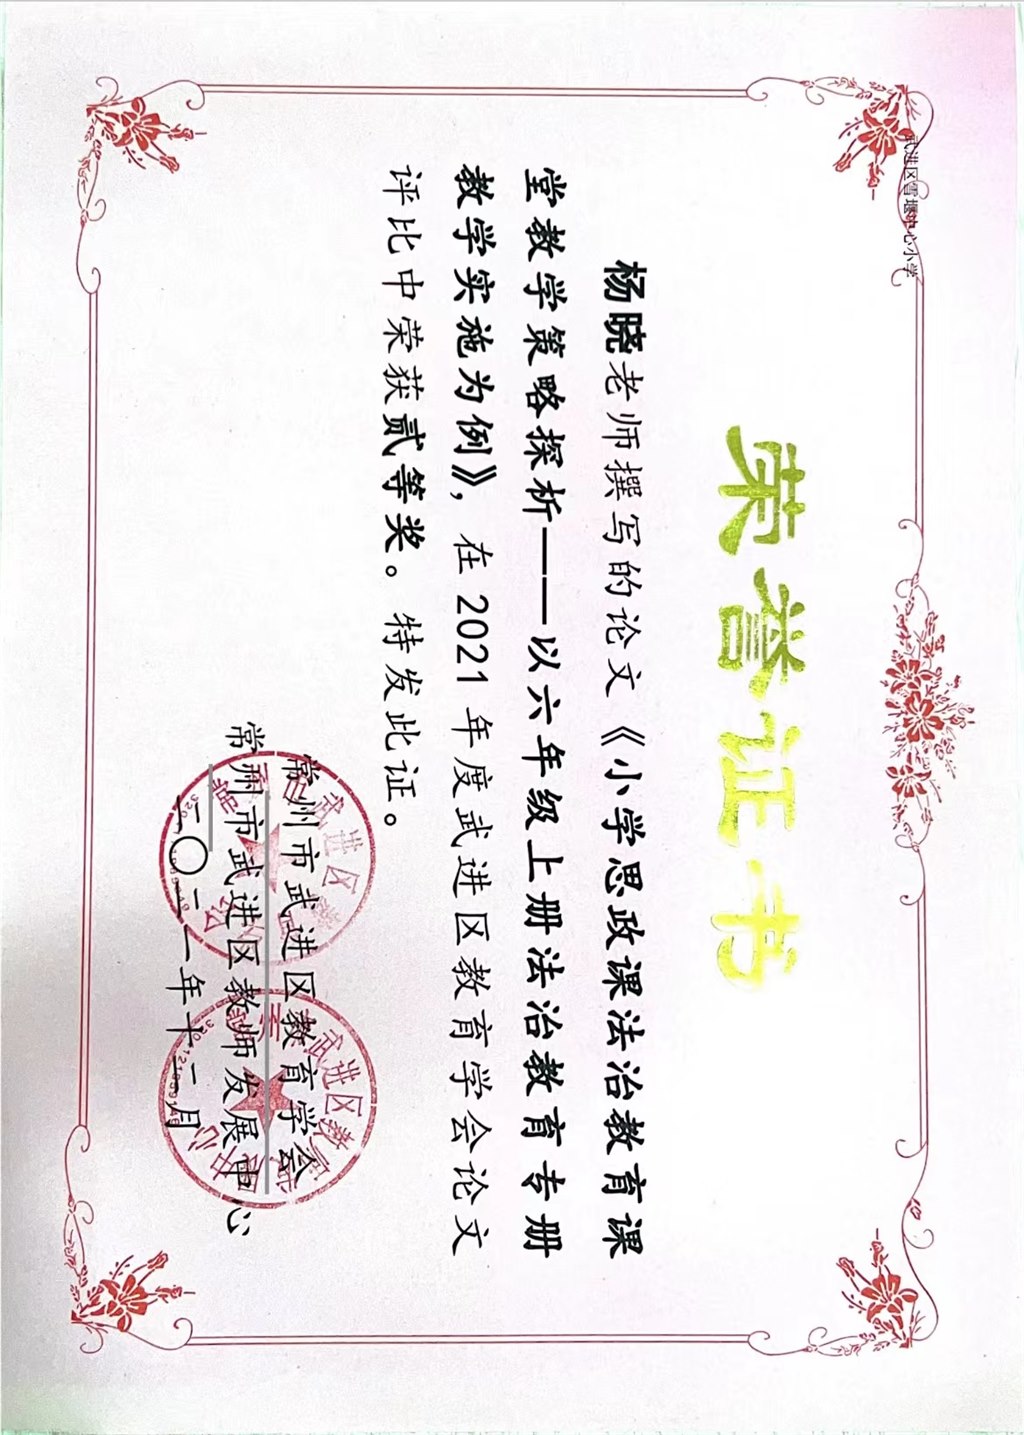 武进区雪堰中心小学
荣誉证书
杨晓老师撰写的论文《小学思政课法治教育课
堂教学策略探析——以六年级上册法治教育专册
教学实施为例》，在 2021 年度武进区教育学会论文
评比中荣获贰等奖。特发此证。
常州市武进区教育学会
常州市武进区教师发展中心
二〇二一年十二月